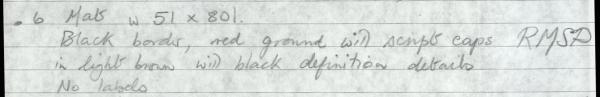 . 6 Mats w 51 x 801.
Black border, red ground with script caps RMSD
in light brown with black definition details
No labels